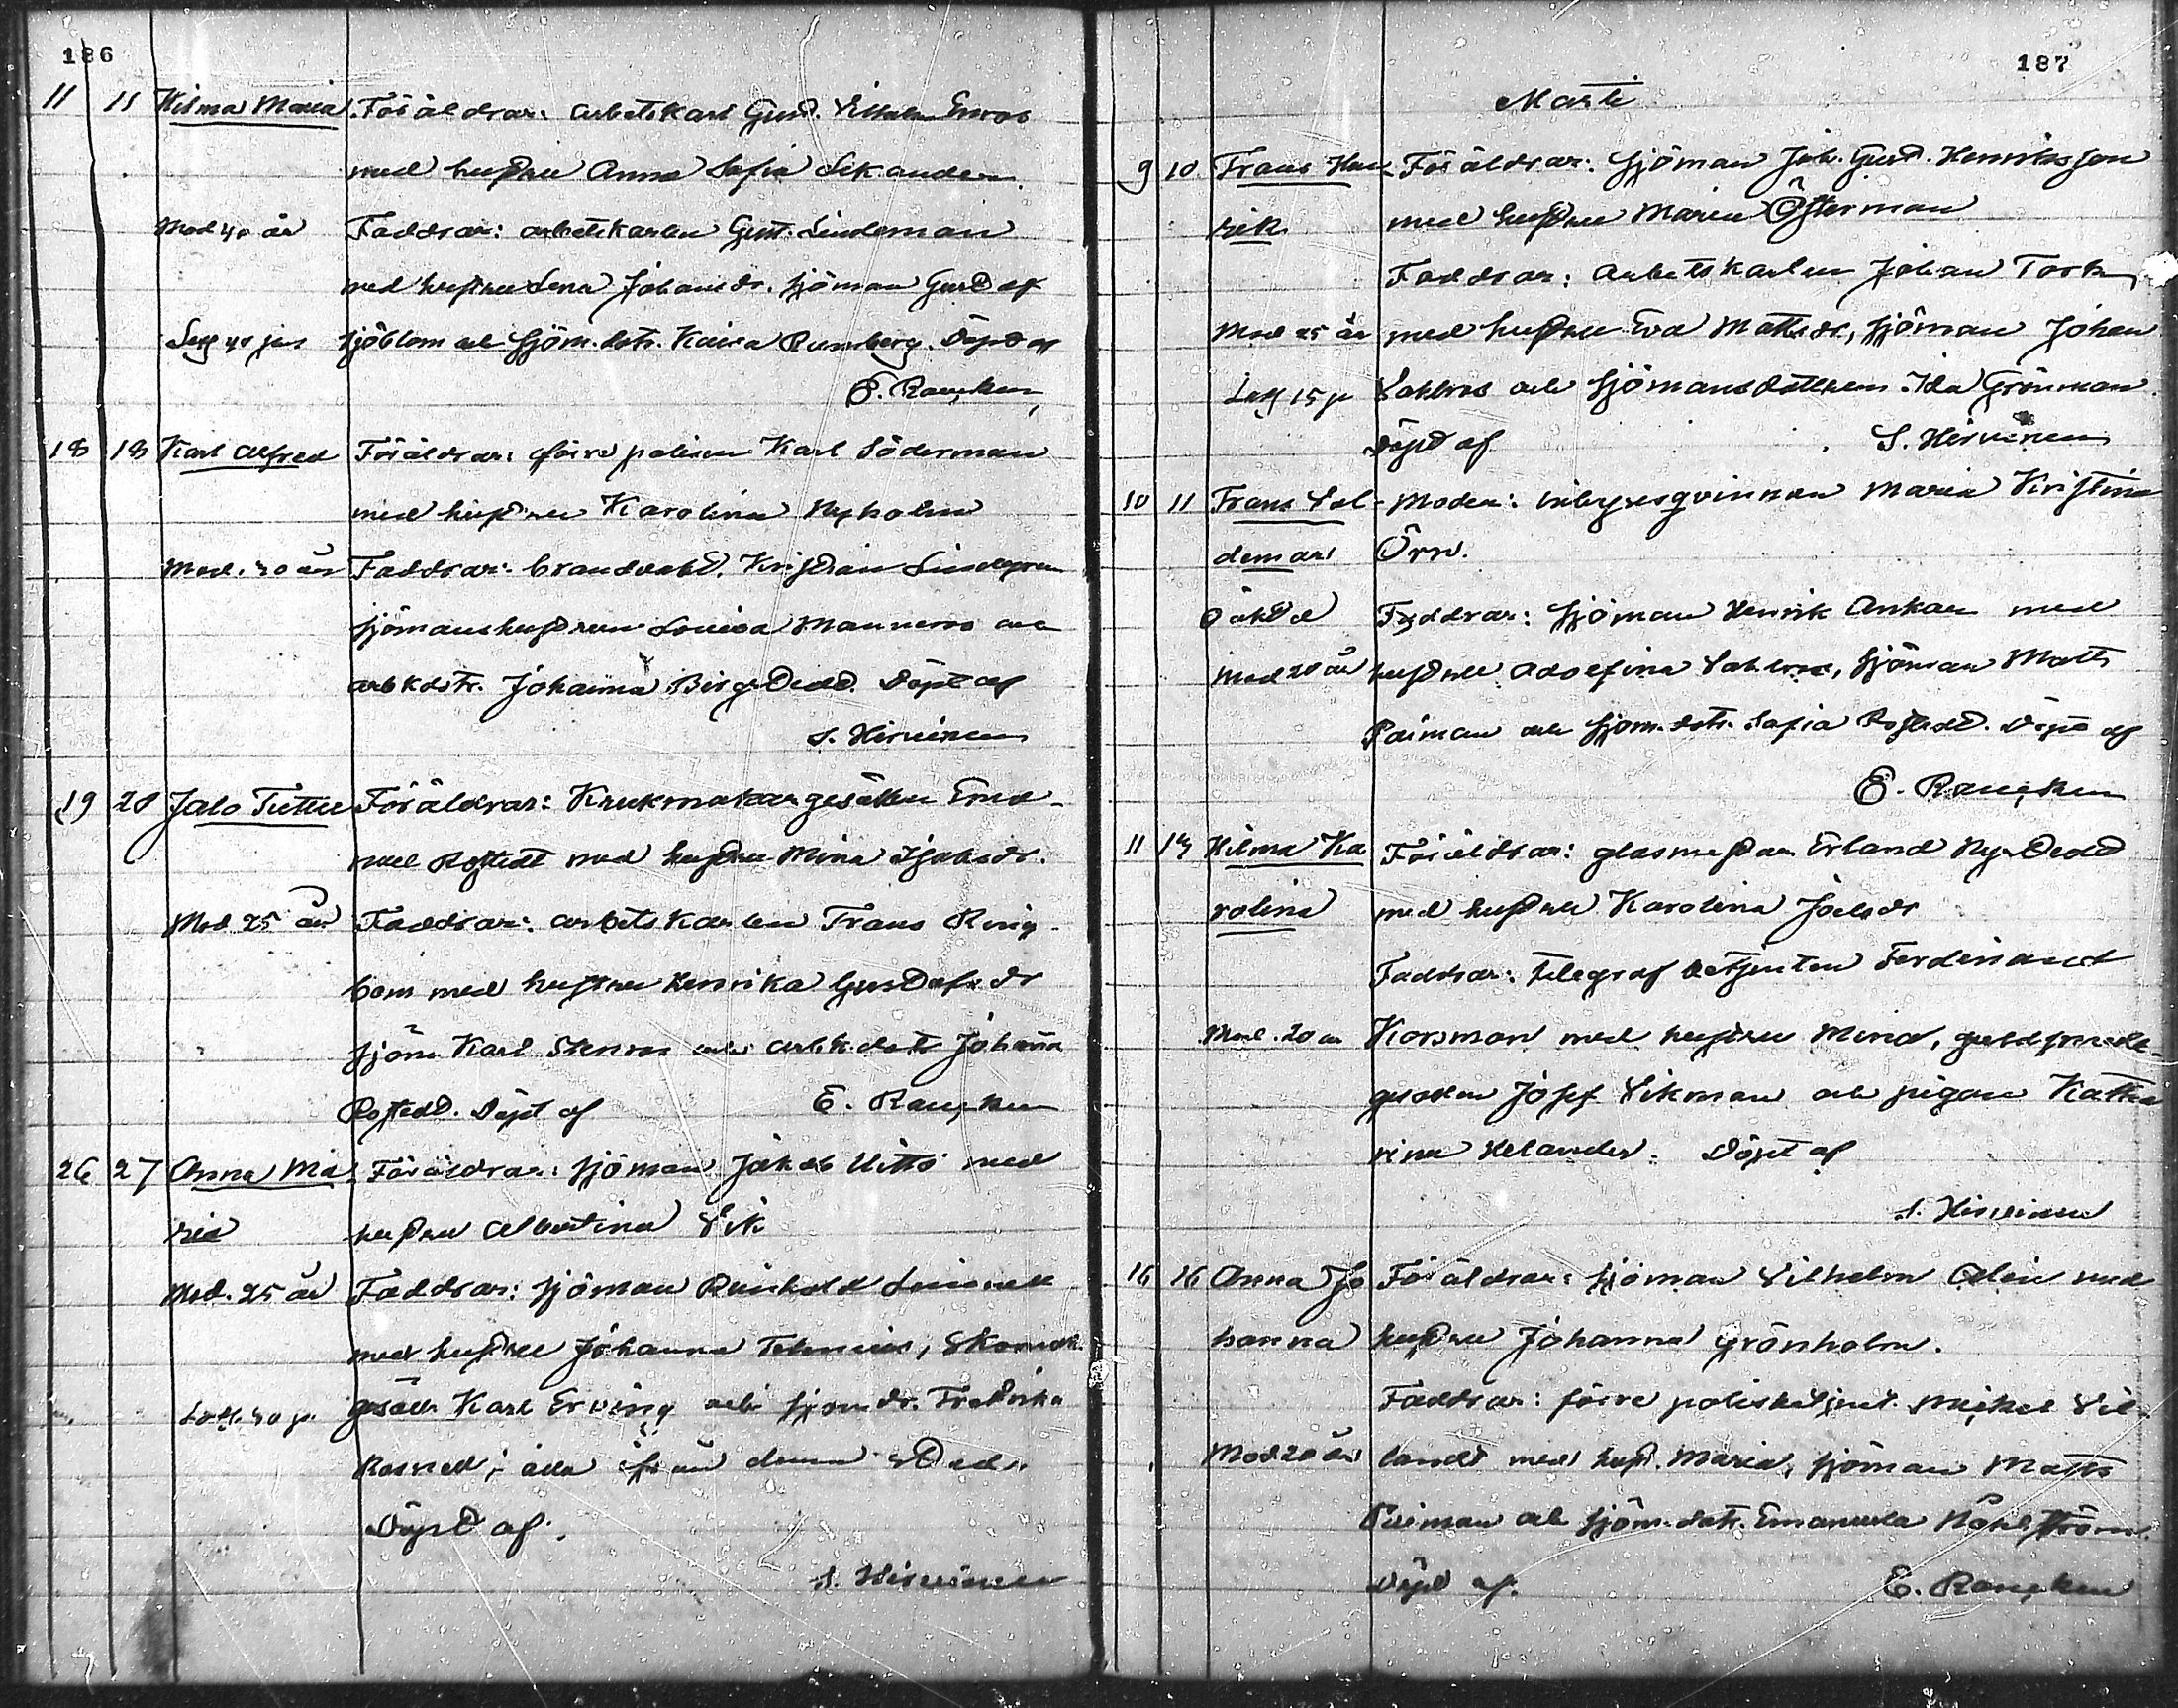 186
11 11 Hilma Maria Föräldrar: arbetskarl Gust. Vilhelm Enros
med hustru Anna Sofia Sikander.
Mod 40 år Faddrar: arbetskarlen Gust. Lindeman
med hustru Lena Johansdr. sjöman Gustaf
Sjöblom och sjöm. dotr. Kaisa Rumberg. Döpt af
E. Rancken
18 18 Karl Alfred Föräldrar: förre polisen Karl Söderman
med hustru Karolina Nyholm
Mod. 40 år Faddrar: brandvakt. Kristian Lindegren
sjömanshustrun Lovisa Manneros och
arbkdotr. Johanna Birgstedt. Döpt af
S. Hirvinen
19 20 Jalo Tuttu Föräldrar: Krukmakaregesällen Ema-
nuel Rostedt med hustru Mina Isaksdr.
Mod 25 år Faddrar: arbetskarlen Frans Ring-
bom med hustru Henrika Gustafsdr
sjöm. Karl Stenros och arbk. dotr Johanna
Rostedt. Döpt af E. Rancken
26 27 Anna Ma- Föräldrar: sjöman Jakob Uitto med
ria hustru Albertina Vik
Mod. 25 år Faddrar: sjöman Reinhold
med hustru Johanna Telenius, Skomak.
gesäll Karl Erving och sjömdr. Fredrika
alla från denna stad.
Döpt af.
S. Hirvinen
187
Marti
9 10 Frans Hen- Föräldrar: sjöman Joh. Gust. Henriksson
rik med hustru Maria Österman
Faddrar: arbetskarlen Johan Tork
Mod 25 år med hustru Eva Mattsdr, sjöman Johan
Sahlros och sjömansdottern Ida Grönman.
Döpt af S. Hirvinen
10 11 Frans Val- Moder: inhysesqvinnan Maria Kristina
demar Örn.
Oäkta Faddrar: sjöman Henrik Ankar med
Mod 20 år hustru Adolfina Sahlros, sjöman Matts
Paiman och sjöm. dotr. Sofia Rostedt. Döpt af
E. Rancken
11 14 Hilma Ka- Föräldrar: glasmästar Erland Nystedt
rolina med hustru Karolina Joelsdr
Faddrar: telegraf betjenten Ferdinand
Mod. 20 år Korsman med hustru Mina, guldsmeds-
gesällen Josef Vikman och pigan Katha-
rina Helander. Döpt af
S. Hirvinen
16 16 Anna Jo- Föräldrar: sjöman Vilhelm Olin med
hanna hustru Johanna Grönholm.
Faddrar: förre polisbetjent. Mickel Vil-
Mod 20 år landt med hust. Maria, sjöman Matts
Paiman och sjöm. dotr. Emanuela
Döpt af. E. Rancken